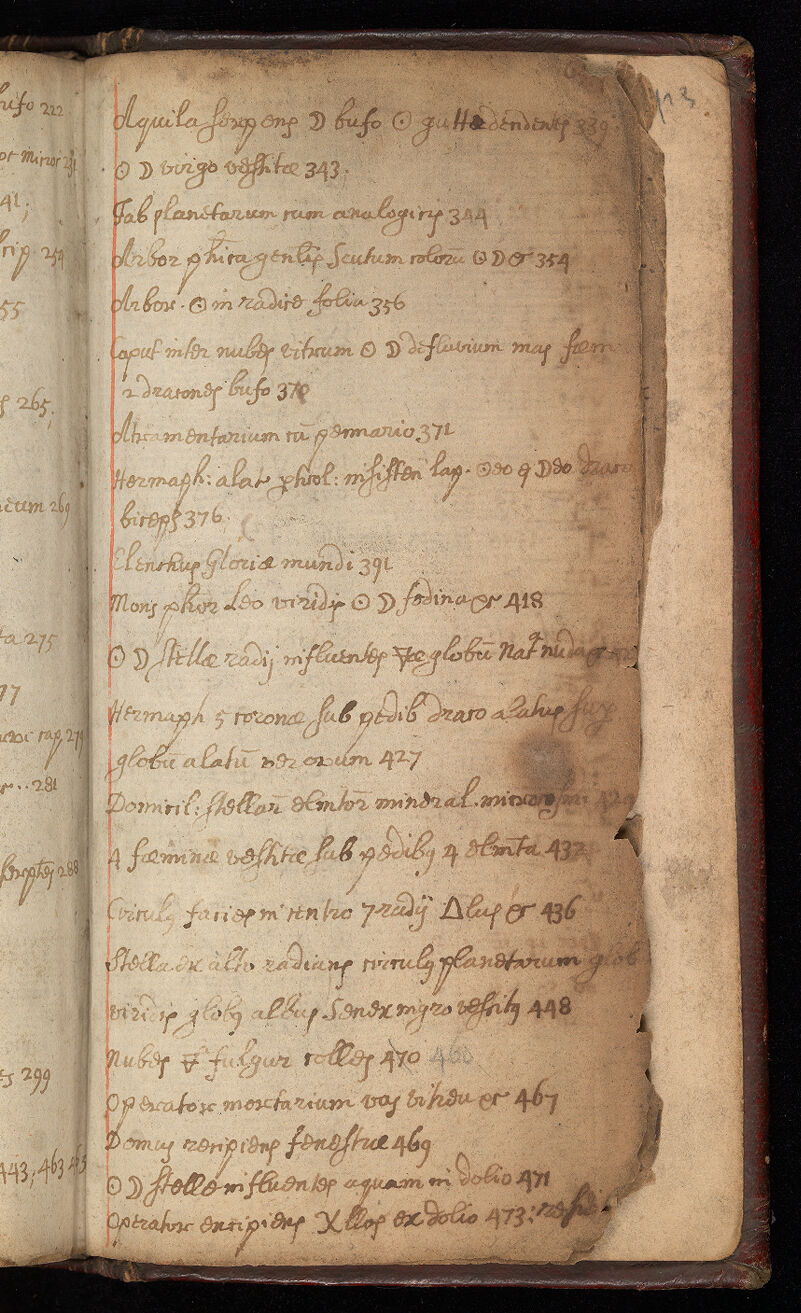 bufo 222
or Micror 231
41;
scrip. 254
55
265;
269
ta 275
77
cap. 279
281
serpētes 288
299
443, 463 465
113
Aquila serpens ☽ bufo ☉ guttae dendentes 339
☉ ☽ virgo vestitæ 343.
Tab planetarum cum analogicis 344
Arbor phica gentis Scutum colorū ☉ ☽ &c 354
Arbor. ☉ in radice folia 356
Caput inter nubes vitrum ☉ ☽ defluvium mas fæm
2 dracones bufo 370
Atramentarium cū pennario 371
Hermaph: alat phol: insisten lap. ☉eo & ☽eo draco
biceps 376
Elenchus Gloriæ mundi 391
Mons phor Leo viridis ☉ ☽ fodina &c 418
☉ ☽ stellæ radij influentes 🜃æ globū Nat nuda
Hermaph 5 coronæ sub pedib draco alatus sup
globū alatū ovum 427
Domicil: stellar elmtor mineral. microcosmi 429
4 fæminæ vestitæ sub pedibꝫ 4 elmta 432
Circulꝫ facies in centro 7 radij 🜂lus &c 436
Stella ex alto radians circulꝫ planetarum glob
viridis globꝫ albus Senex nigro vestitꝫ 448
Nubes fulgur colles 470 460
Operator mortarium vas vitreū &c 467
Domus recipiens fenestræ 469
☉ ☽ stellæ influentes aquam in dolio 471
Operator encipiens Xllos ex dolio 473: